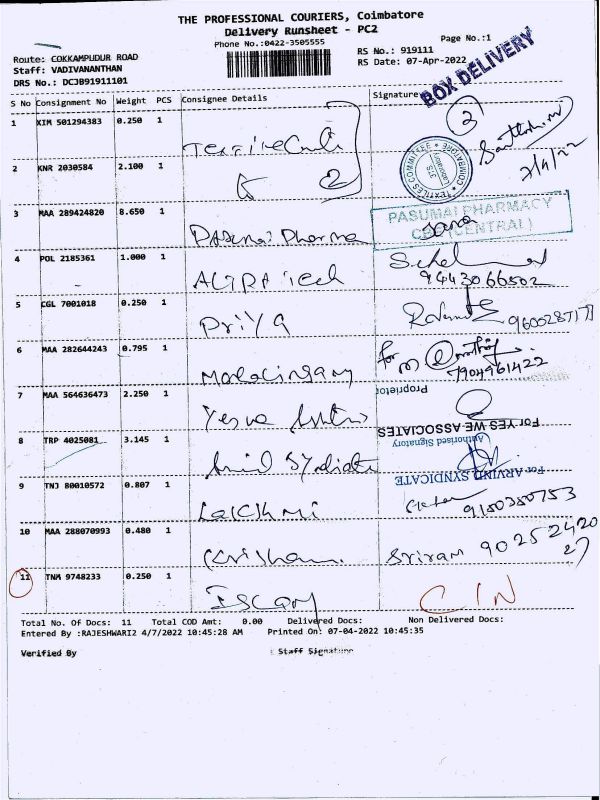 THE PROFESSIONAL COURIERS, Coimbatore
Delivery Runsheet - PC2
Phone No.:0422-3505555
Page No.:1
Route: COKKAMPUDUR ROAD
Staff: VADIVANANTHAN
DRS No.: DCJB91911101
RS No.: 919111
RS Date: 07-Apr-2022
BOX DELIVERY
S No Consignment No Weight PCS Consignee Details Signature
1 KIM 501294383 0.250 1
2
7/4/22
2 KNR 2030584 2.100 1
2
3 MAA 289424820 8.650 1 Pasumai Pharma
PASUMAI PHARMACY
(CENTRAL)
4 POL 2185361 1.000 1
9443066502
5 CGL 7001018 0.250 1 Priya
9600287171
6 MAA 282644243 0.795 1 Mahalingam
for
7904961422
Proprietor
7 MAA 564636473 2.250 1
For YES WE ASSOCIATES
8 TRP 4025081 3.145 1
Authorised Signatory
For ARVIND SYNDICATE
9 TNJ B0010572 0.807 1 Lakshmi
9150380753
10 MAA 288070993 0.480 1
Sriram 90252420
27
11 TNM 9748233 0.250 1
CIN
Total No. Of Docs: 11 Total COD Amt: 0.00 Delivered Docs: Non Delivered Docs:
Entered By :RAJESHWARI2 4/7/2022 10:45:28 AM Printed On: 07-04-2022 10:45:35
Verified By Staff Signature